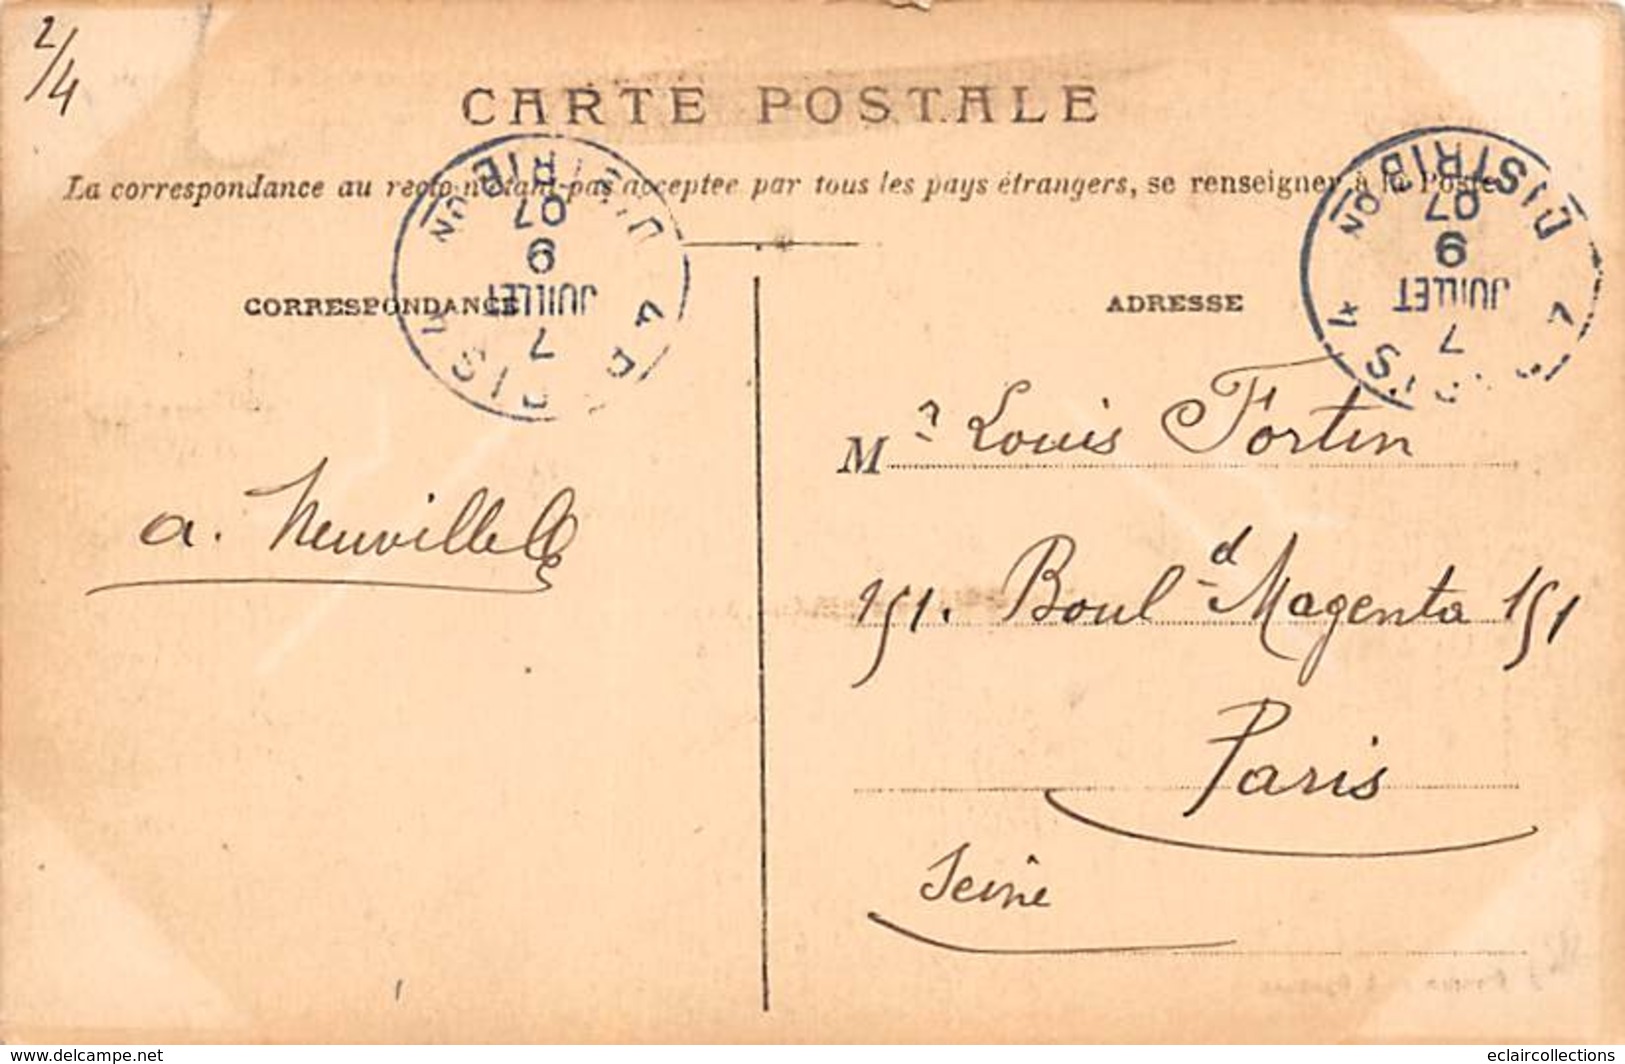 2/4
CARTE POSTALE
La correspondance au recto n'étant pas acceptee par tous les pays étrangers, se renseigner à la Poste
DISTRIB ON
07
9
JUILLET
7
CORRESPONDANCE
ADRESSE
a. Neuville
Mr Louis Fortin
151. Bould Magenta 151
Paris
Seine
www.delcampe.net
eclaircollections